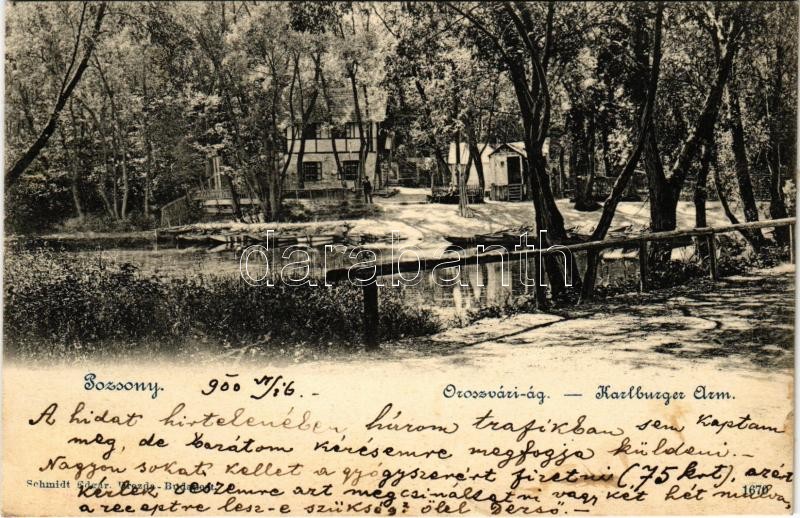 darabanth
Pozsony. 900 VI/26.-
Oroszvári-ág. — Karlburger Arm.
A hidat hirtelenében három trafikban sem kaptam
meg, de barátom kérésemre megfogja küldeni.-
Nagyon sokat kellet a gyógyszerért fizetni (75 krt), azért
Schmidt Edgar, Budapest. 1676
kérlek légy szives azt megcsináltatni vagy két hét mulva
a receptre lesz-e szükség? ölel Dezső.-